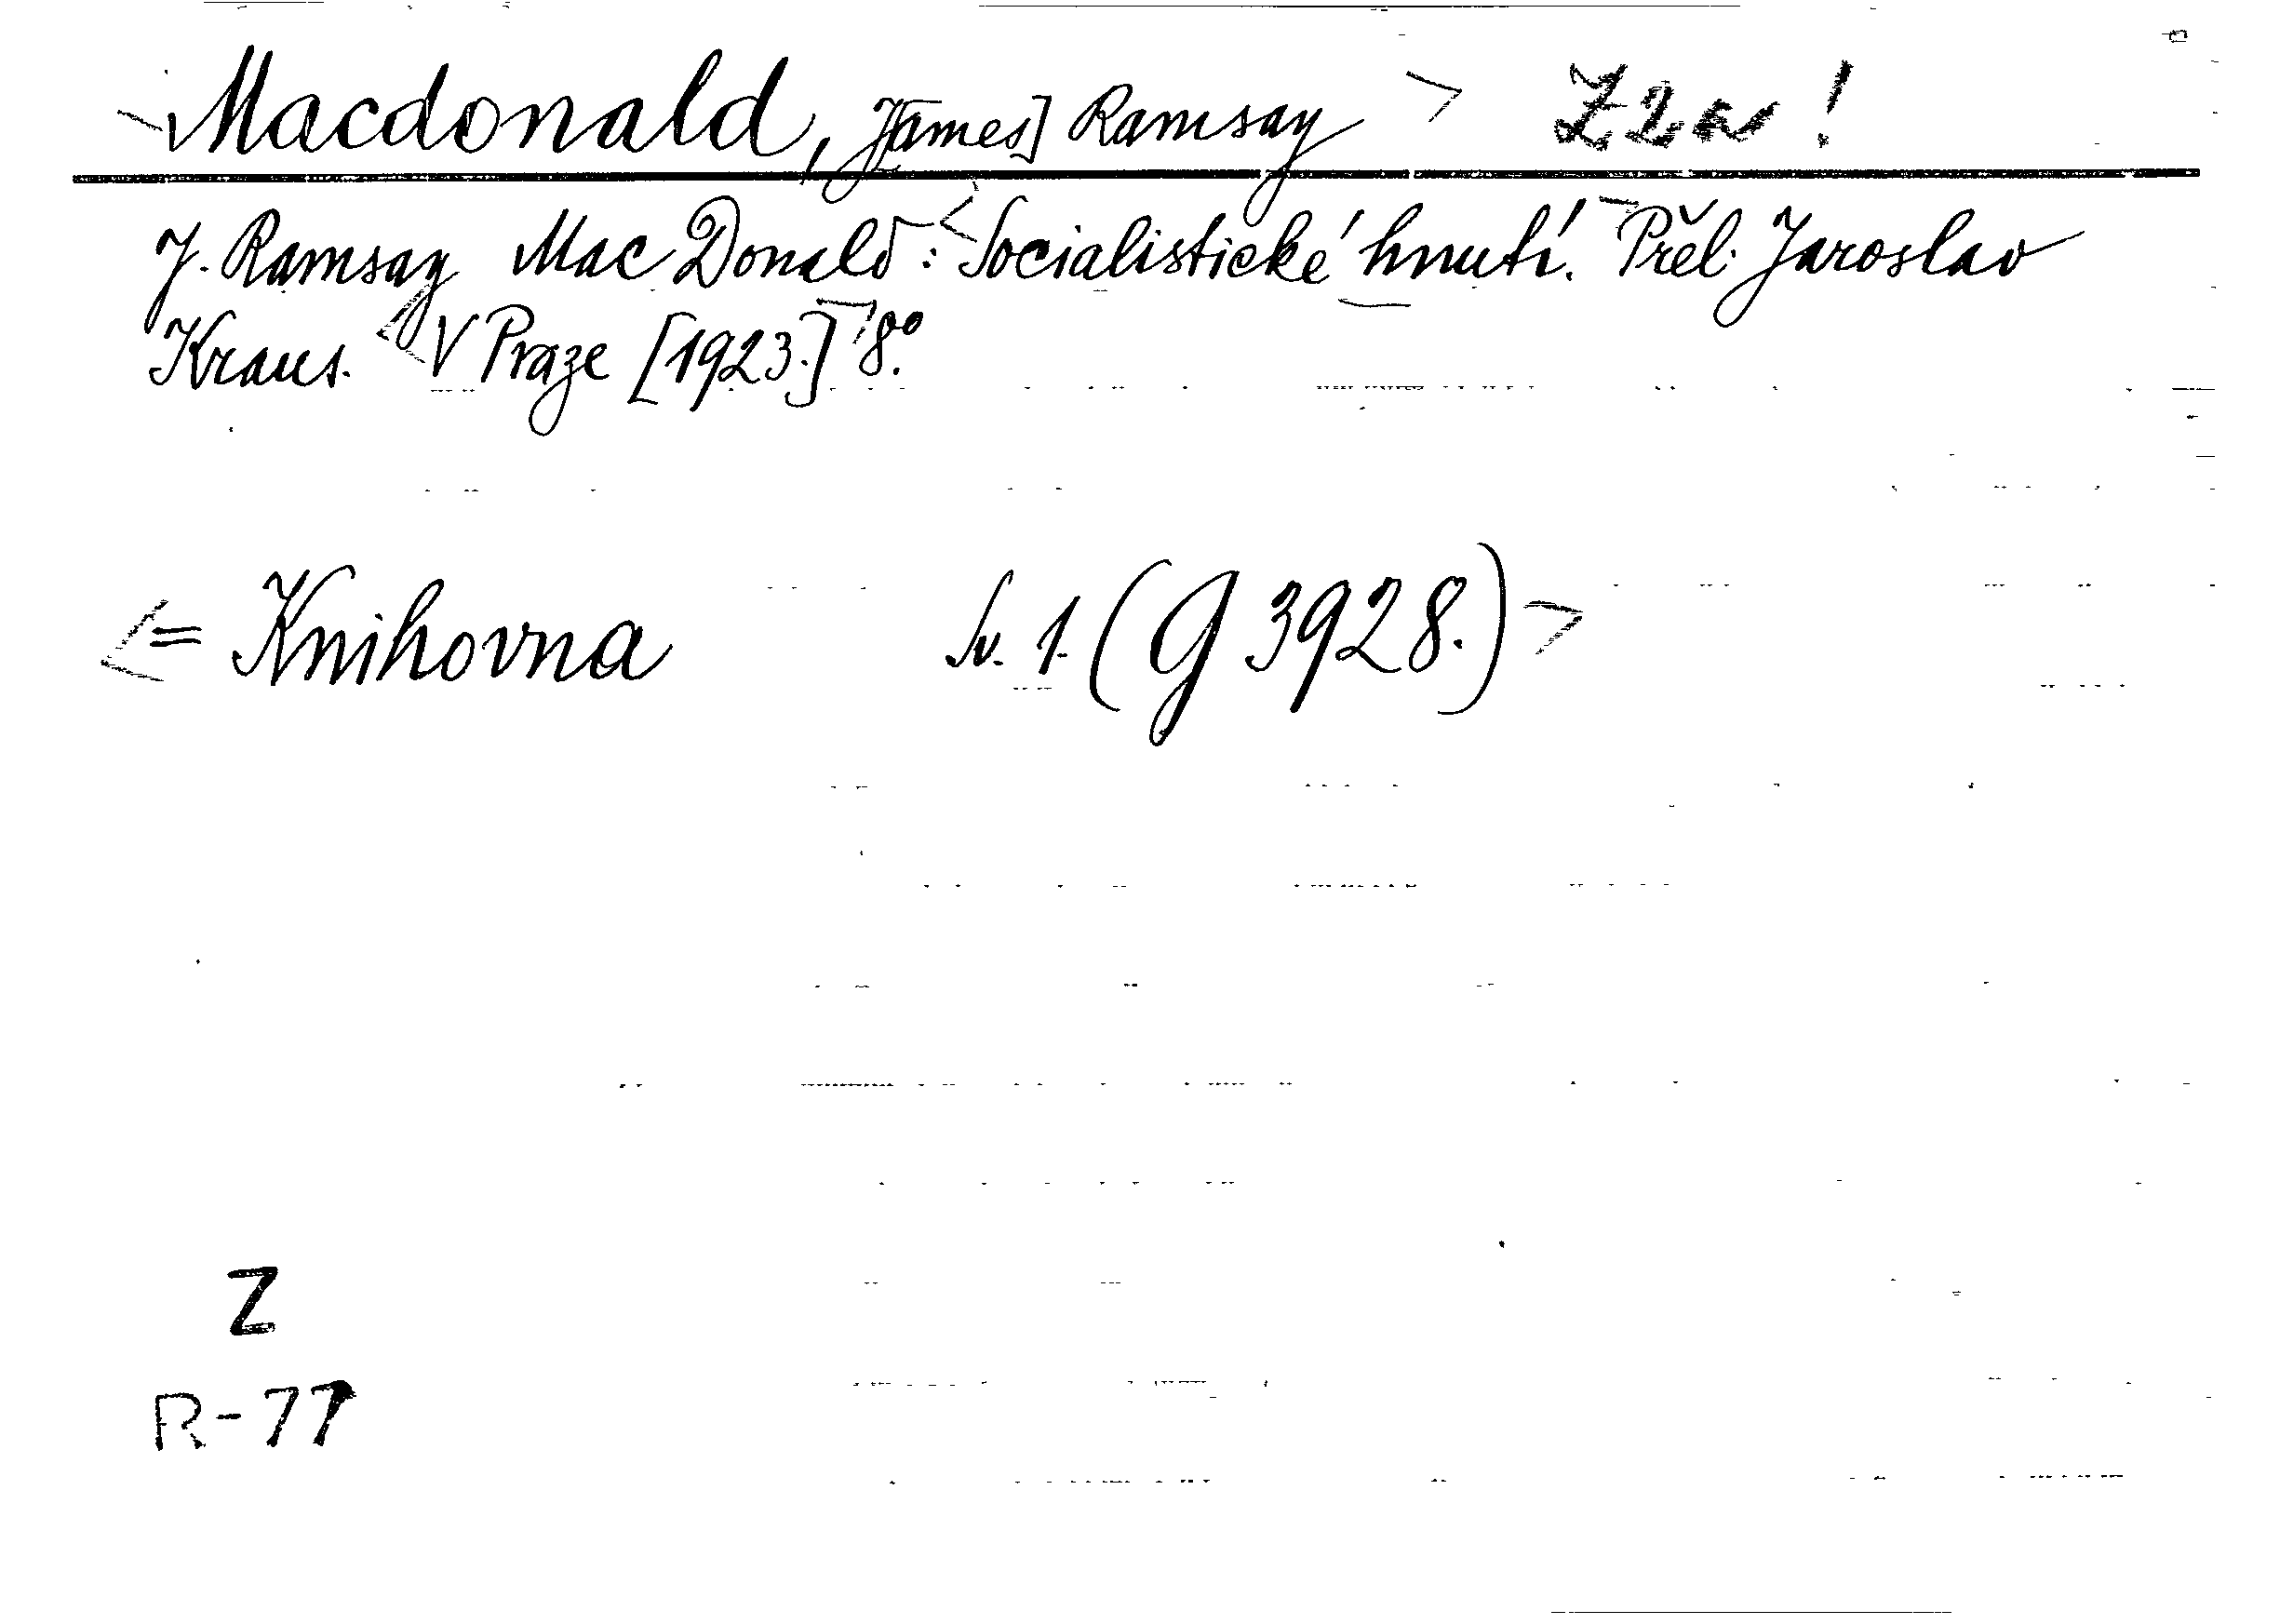 Macdonald, J[ames] Ramsay
J. Ramsay Mac Donald: Socialistické hnutí. Přel. Jaroslav
Kraus. V Praze [1923.] 8°.
= Knihovna Sv. 1. (G 3928.)
Z
R-77